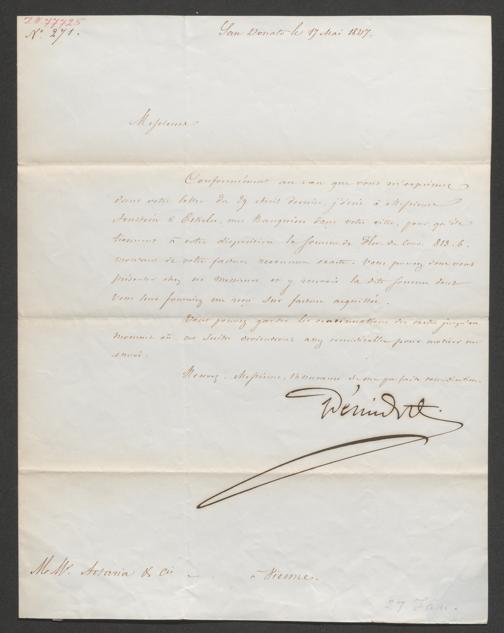 N.° 271.
San Donato le 17 Mai 1847.
Messieurs
Conformément au que vous m'exprimez
dans votre lettre du 29 Avril dernier, j'écris à Messieurs
& Eskeles, mes banquiers dans votre ville, pour qu'ils
tiennent à votre disposition la somme de Flor. de Conv. 813. 6.
montant de votre facture reconnue exacte. Vous pouvez donc vous
présenter chez ces messieurs et y recevoir la dite somme dont
vous leur fournirez un reçu sur facture acquittée.
Vous pouvez garder les continuations des suites jusqu'au
moment où ces suites deviendront assez considérables pour motiver un
envoi.
Recevez, Messieurs, l'assurance de ma parfaite considération.
M.M.rs Artaria & Cie
à Vienne.